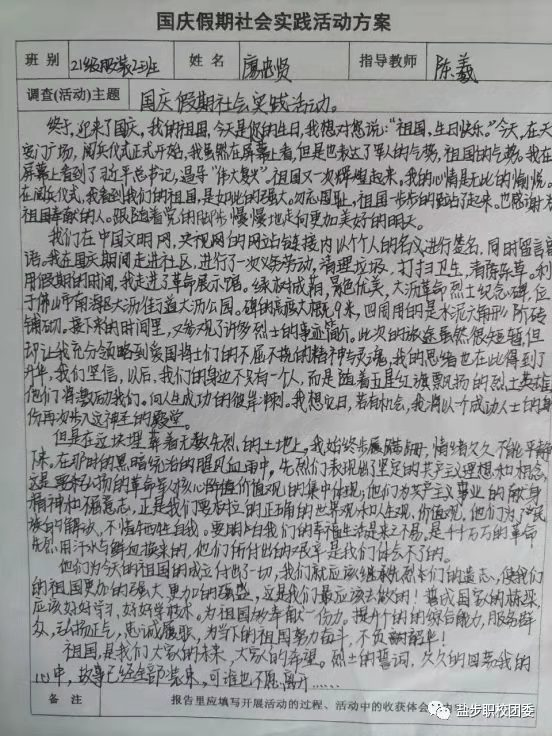 国庆假期社会实践活动方案
班 别 21级服装2班 姓 名 廖忠贤 指导教师 陈羲
调查(活动)主题 国庆假期社会实践活动。
终于,迎来了国庆,我的祖国,今天是您的生日,我想对您说:“祖国,生日快乐。”今天,在天
安门广场,阅兵仪式正式开始,我虽然在屏幕上看,但是也表达了军人的气势,祖国的气势。我在
屏幕上看到了习近平总书记,倡导“伟大复大”祖国又一次辉煌起来。我的心情是无比的愉悦。
在阅兵仪式,我看到我们的祖国,是如此的强大。勿忘国耻,祖国一步步的站了起来。也感谢为
祖国奉献的人。跟随着党的脚步慢慢地走向更加美好的明天。
我们在中国文明网,央视网的网站链接内以个人的名义进行签名,同时留言寄
语。我在国庆期间走进社区,进行了一次义务劳动,清理垃圾,打扫卫生,清除杂草。利
用假期的时间,我走进了革命展示馆。绿树成荫,景色优美,大沥革命烈士纪念碑,位
于佛山市南海区大沥镇大沥公园。碑的高度大概9米,四周用的是水泥六角形阶砖
铺砌。接下来的时间里,又参观了许多烈士的事迹简介。此次的旅途虽然很短暂,但
却让我充分领略到爱国将士们的不屈不挠的精神与灵魂,我的思绪也在此得到了
升华,我们坚信,以后,我们的身边不只有一个人,而是随着五星红旗飘扬的烈士英雄
他们将激励我们。向人生成功的彼岸冲刺。我想他日,若有机会,我将以一个成功人士的身
份再次步入这神圣的殿堂。
但是在这块埋葬着无数先烈的土地上,我始终步履蹒跚,情绪久久不能平静
下来。在那时的黑暗统治的腥风血雨中,先烈们表现出了坚定的共产主义理想和相念,
这是革命的革命家人核心价值观的集中体现;他们为共产主义事业的献身
精神和强意志,正是我们要有的正确的世界观和人生观、价值观,他们为了民
族的解放,不惜牺牲自我。要明白我们的幸福生活是来之不易,是千千万万的革命
先烈用汗水与鲜血换来的,他们所付出的艰辛是我们体会不了的。
他们为今天的祖国的成立付出了一切,我们就应该继承先烈们的遗志,使我们
的祖国更加的强大,更加的强盛,这是我们最应该去做的!誓成国家的栋梁,
应该好好学习,好好学技术。为祖国的奉献一份力。提升个的综合能力,服务群
众,弘扬正气,忠诚履职,为当下的祖国努力奋斗,不负韶华!
祖国,是我们大家的未来,大家的希望。烈士的誓词,久久的回荡我的
心中,故事已经全部结束,可谁也不愿离开……
备 注 报告里应填写开展活动的过程、活动中的收获体会
盐步职校团委